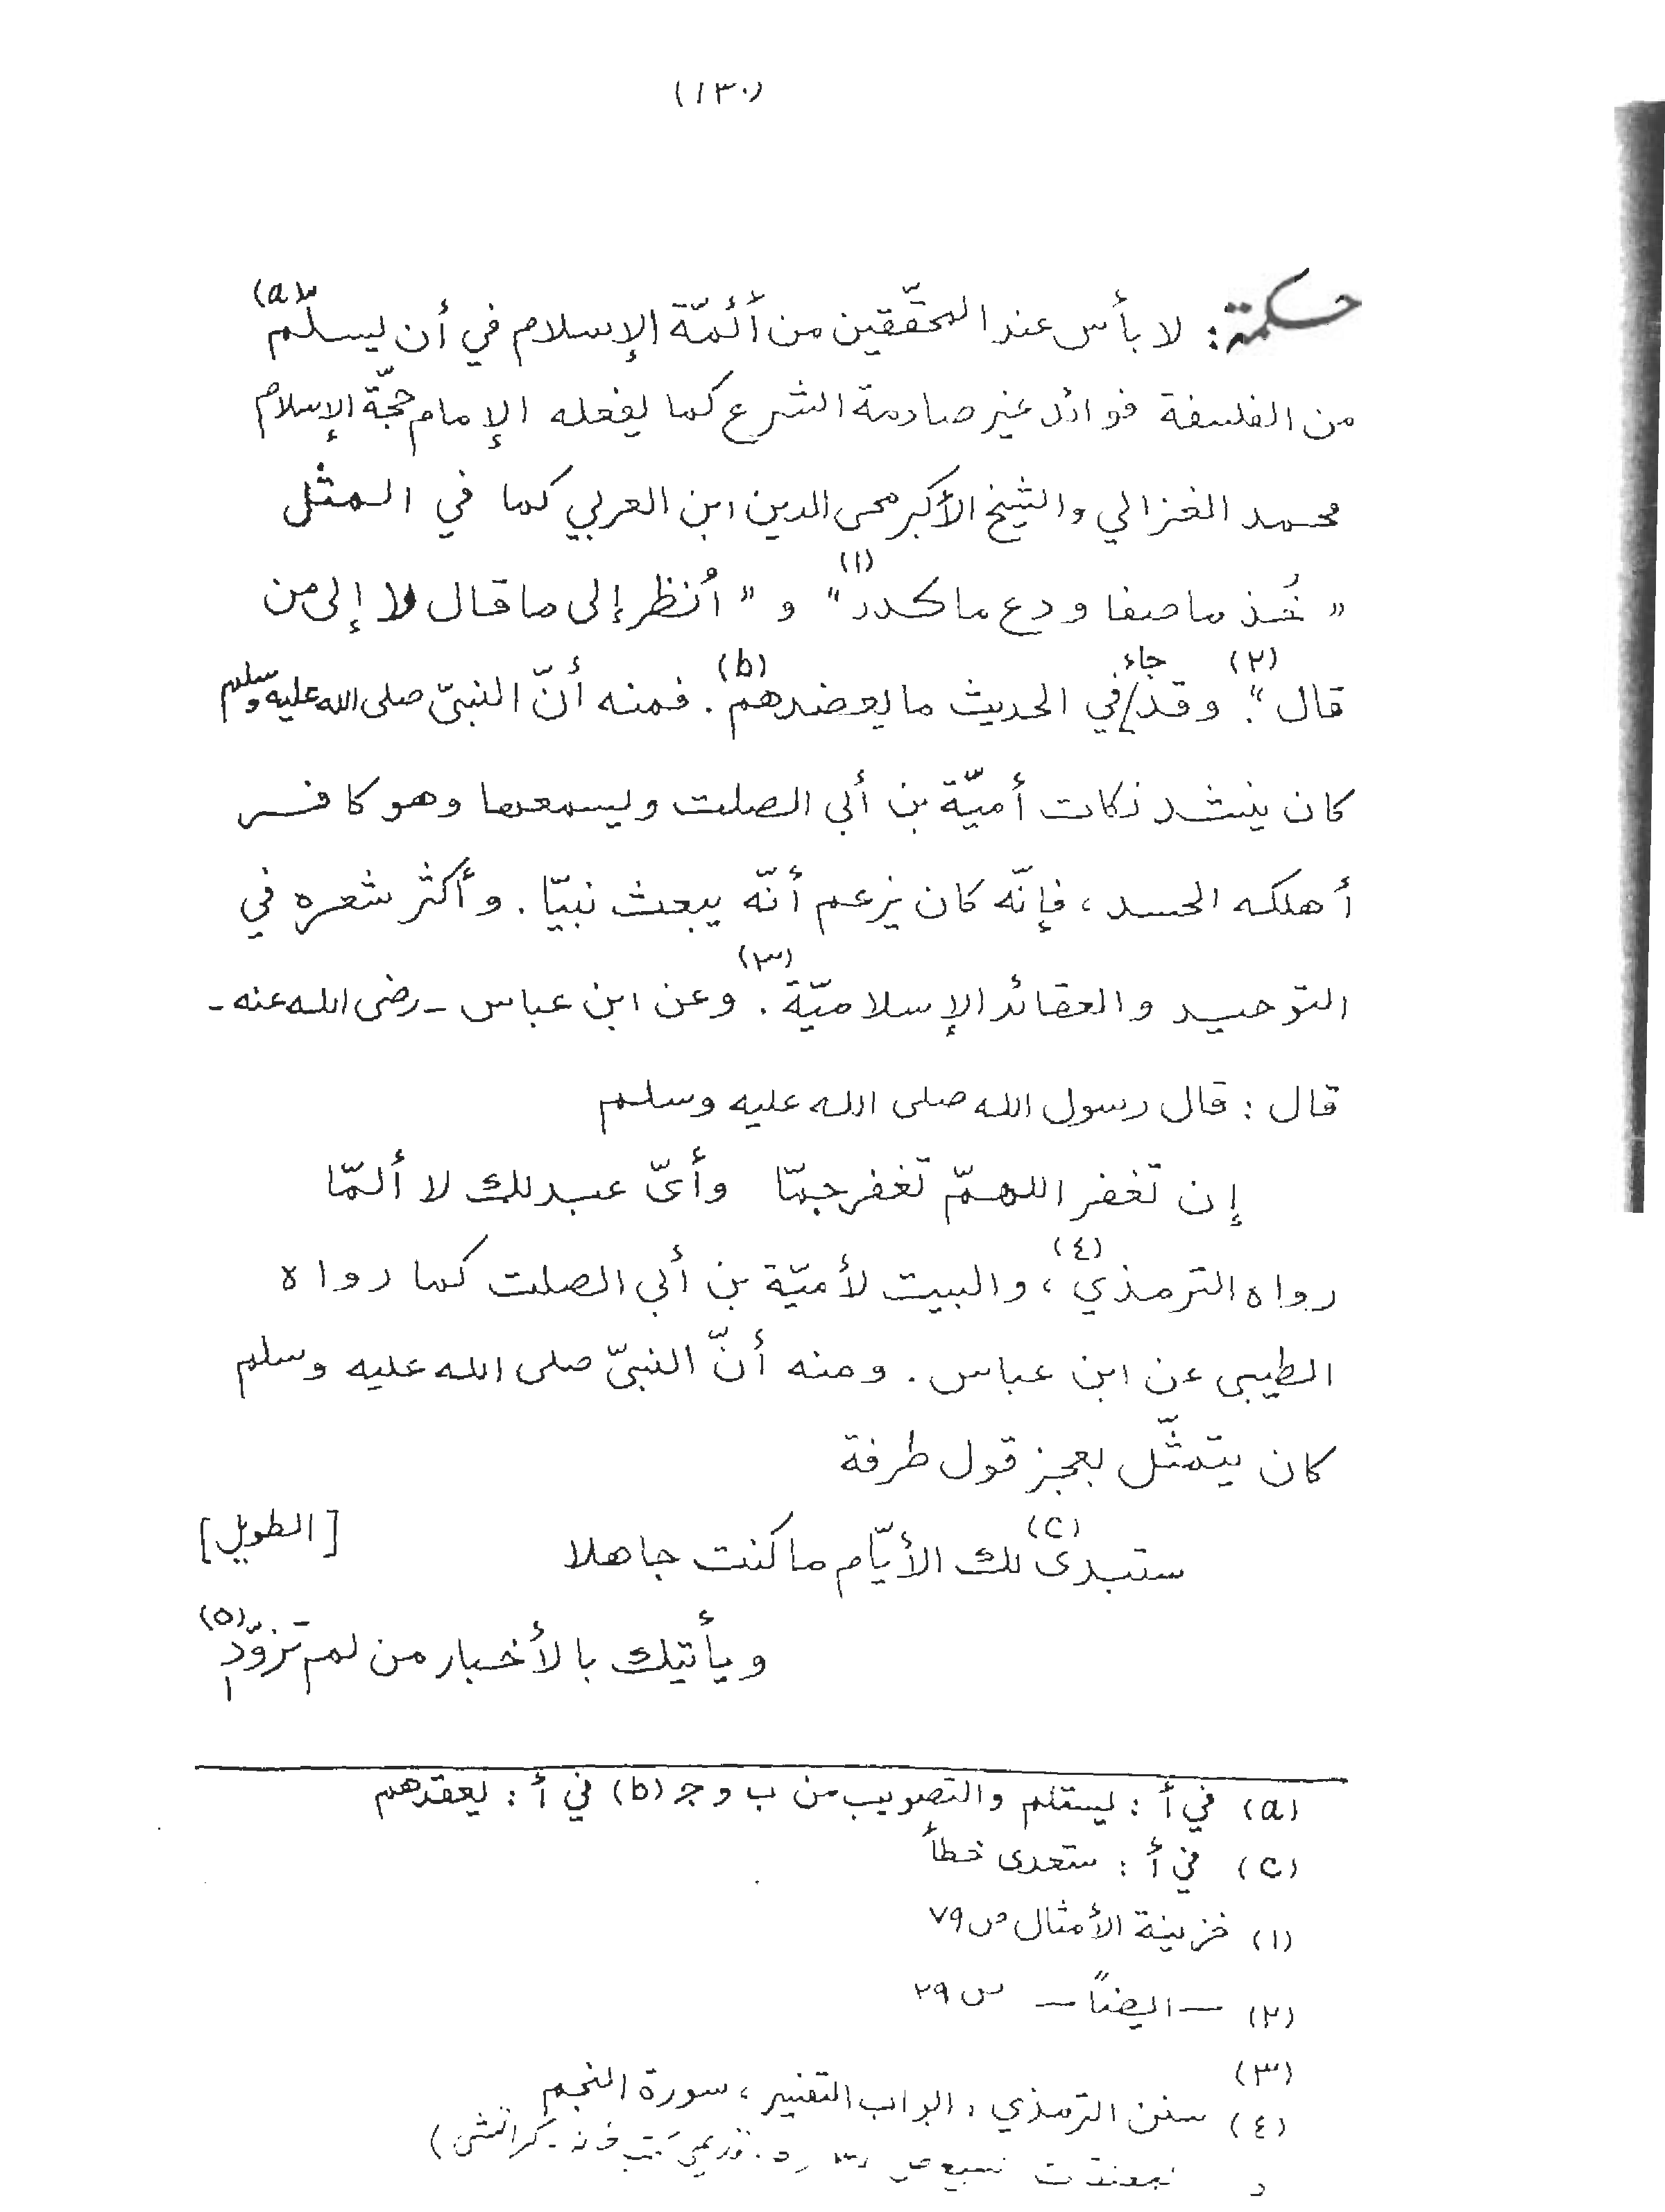 (١٣٠)
حكمة: لا بأس عند المحقّقين من أئمّة الإسلام في أن يسلّم (a)
من الفلسفة فوائد غير صادمة الشرع كما يفعله الإمام حجّة الإسلام
محمد الغزالي والشيخ الأكبر محى الدين ابن العربي كما في المثل
"خُذ ما صفا ودع ما كدر" (١) و "اُنظر إلى ما قال لا إلى من
قال". (٢) وقد/جاء في الحديث ما يعضدهم (b). فمنه أنّ النبىّ صلى الله عليه وسلم
كان ينشد نكات أميّة بن أبى الصلت ويسمعها وهو كافر
أهلكه الحسد، فإنّه كان يزعم أنّه يبعث نبيّا. وأكثر شعره في
التوحيد والعقائد الإسلاميّة (٣). وعن ابن عباس - رضى الله عنه -
قال: قال رسول الله صلى الله عليه وسلم
إن تغفر اللهمّ تغفر جمّا وأىّ عبد لك لا ألمّا
رواه الترمذي (٤)، والبيت لأميّة بن أبى الصلت كما رواه
الطيبى عن ابن عباس. ومنه أنّ النبىّ صلى الله عليه وسلم
كان يتمثّل بعجز قول طرفة
ستبدى (c) لك الأيّام ما كنت جاهلا [الطويل]
ويأتيك بالأخبار من لم تزوّدِ (٥)
(a) في أ: يستلم والتصويب من ب و ج (b) في أ: يعقدهم
(c) في أ: ستعدى خطأ
(١) خزينة الأمثال ص ٧٩
(٢) — ايضاً — ص ٢٩
(٣)
(٤) سنن الترمذي، ابواب التفسير، سورة النجم